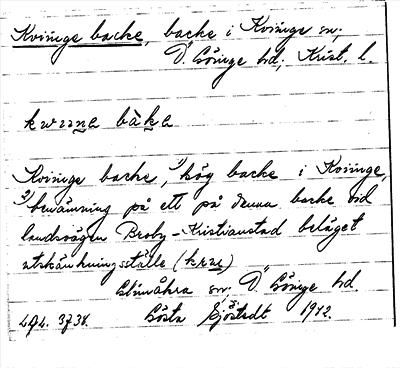 Kviinge backe, backe i Kviinge sn;
Ö. Göinge hd; Krist. l.
Kviinge backe, 1) hög backe i Kviinge,
2) benämning på ett på denna backe vid
landsvägen Broby–Kristianstad beläget
utskänkningsställe
Glimåkra sn. Ö. Göinge hd.
Gösta Sjöstedt 1912.